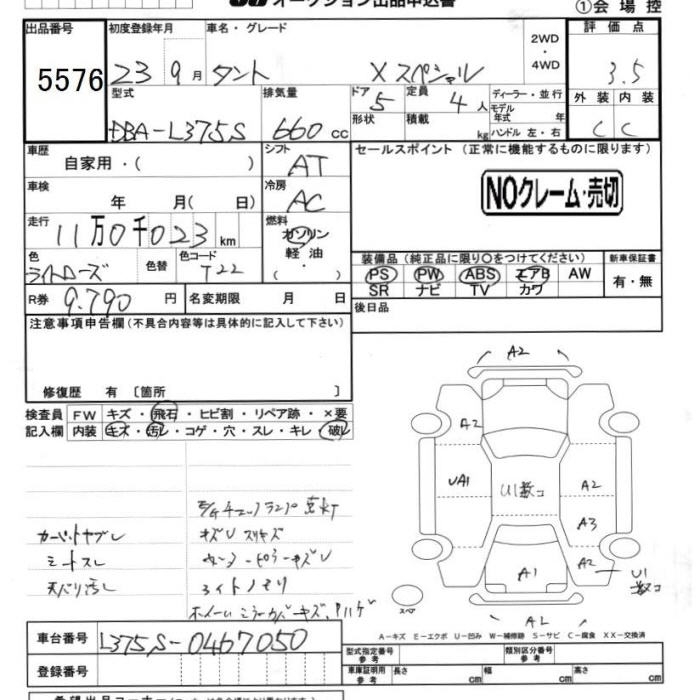 オークション出品申込書
①会場控
出品番号 初度登録年月 車名・グレード 2WD・4WD 評価点
5576 23 9月 タント Xスペシャル 3.5
型式 排気量 ドア 5 定員 4人 ディーラー・並行 外装 内装
DBA-L375S 660cc 形状 積載 kg モデル年式 年 C C
ハンドル 左・右
車歴 シフト セールスポイント (正常に機能するものに限ります)
自家用・( ) AT
NOクレーム・売切
車検 冷房
年 月( 日) AC
走行 燃料
11万0千023km ガソリン
軽油・( )
色 色替 色コード 装備品 (純正品に限り○をつけてください) 新車保証書
ライトローズ T22 PS PW ABS エアB AW 有・無
SR ナビ TV カワ
R券 9,790円 名変期限 月 日 後日品
注意事項申告欄(不具合内容等は具体的に記入して下さい)
修復歴 有 〔箇所 〕
検査員 FW キズ・飛石・ヒビ割・リペア跡・×要
記入欄 内装 キズ・汚レ・コゲ・穴・スレ・キレ・破レ
A2
A2
UA1 U1数コ A2
A3
A1 A2 U1数コ
スペア
A2
E/Gチェックランプ点灯
カーペットヤブレ キズU スリキズ
シートスレ
天バリ汚レ
A-キズ E-エクボ U-凹み W-補修跡 S-サビ C-腐食 XX-交換済
車台番号 L375S-0467050
型式指定番号 参考 類別区分番号 参考
登録番号 車庫証明用 参考 長さ cm 幅 cm 高さ cm